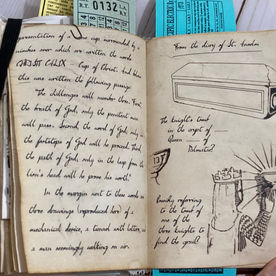 0132
representation of a cup surrounded by
number over which are written the words
CHRIST CALIX - Cup of Christ. And below
this was written the following passage:
"The challenges will number three. First,
the breath of God, only the penitent man
will pass. Second, the word of God, only in
the footsteps of God will he proceed. Third,
the path of God, only in the leap from the
lion's head will he prove his worth."
In the margin next to these words are
three drawings (reproduced here) of a
mechanical device, a tunnel with letters, and
a man seemingly walking on air.
From the diary of St. Anselm
The knight's tomb
in the crypt of
Queen of
Palmetier?
Exactly referring
to the tomb of
one of the
three knights to
find the grail?